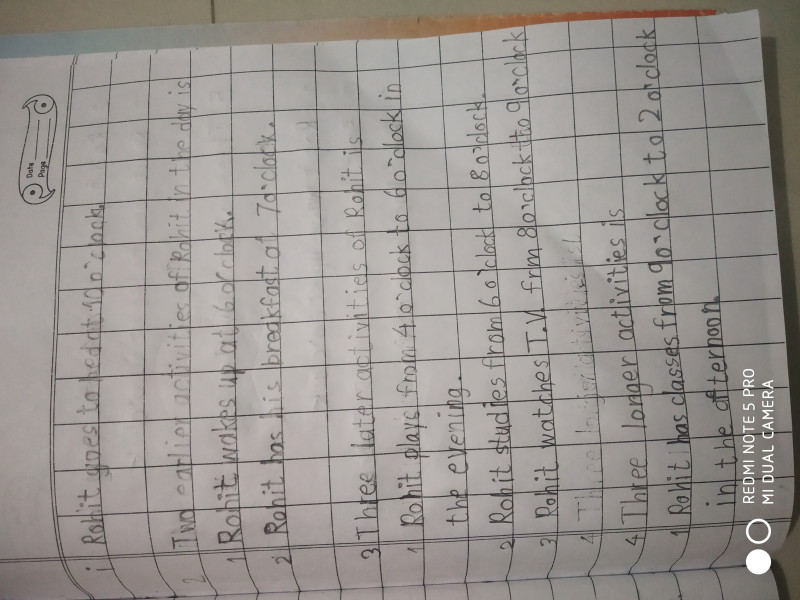 Date
Page
i Rohit goes to bed at 10 o'clock.
2 Two earlier activities of Rohit in the day is
1 Rohit wakes up at 6 o'clock.
2 Rohit has his breakfast at 7 o'clock.
3 Three later activities of Rohit is
1 Rohit plays from 4 o'clock to 6 o'clock in
the evening.
2 Rohit studies from 6 o'clock to 8 o'clock.
3 Rohit watches T.V. frm 8 o'clock to 9 o'clock
4 Three longer activities
4 Three longer activities is
1 Rohit has classes from 9 o'clock to 2 o'clock
in the afternoon.
REDMI NOTE 5 PRO
MI DUAL CAMERA